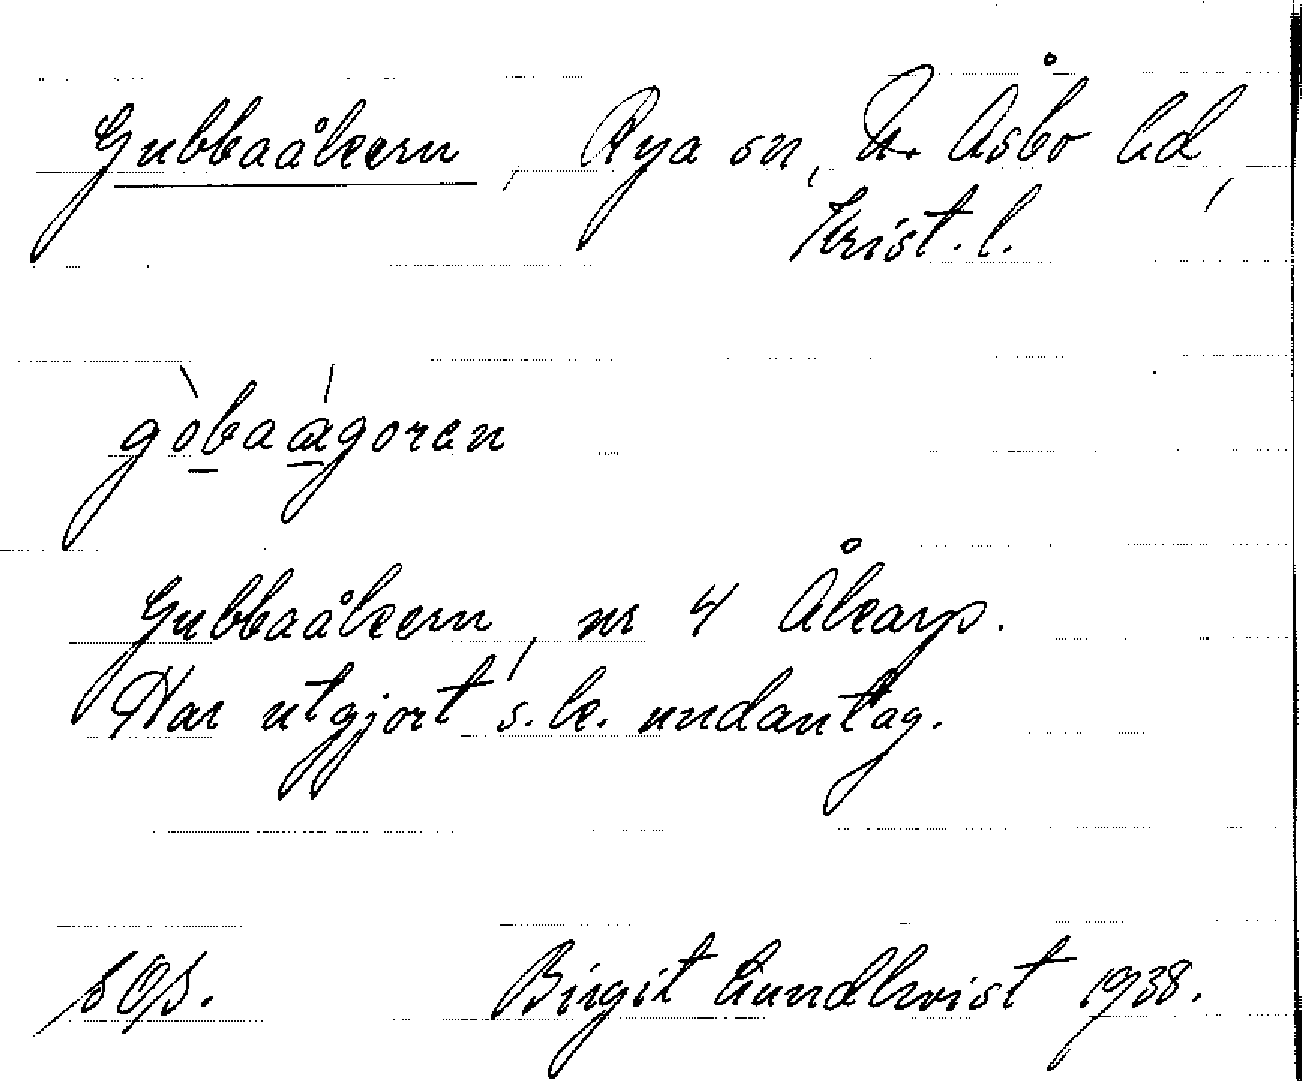 Gubbaåkern, Rya sn, N. Åsbo hd,
Krist. l.
gòbaágoren
Gubbaåkern, nr 4 Åkarp.
Har utgjort s.k. undantag.
Birgit Lundkvist 1938.